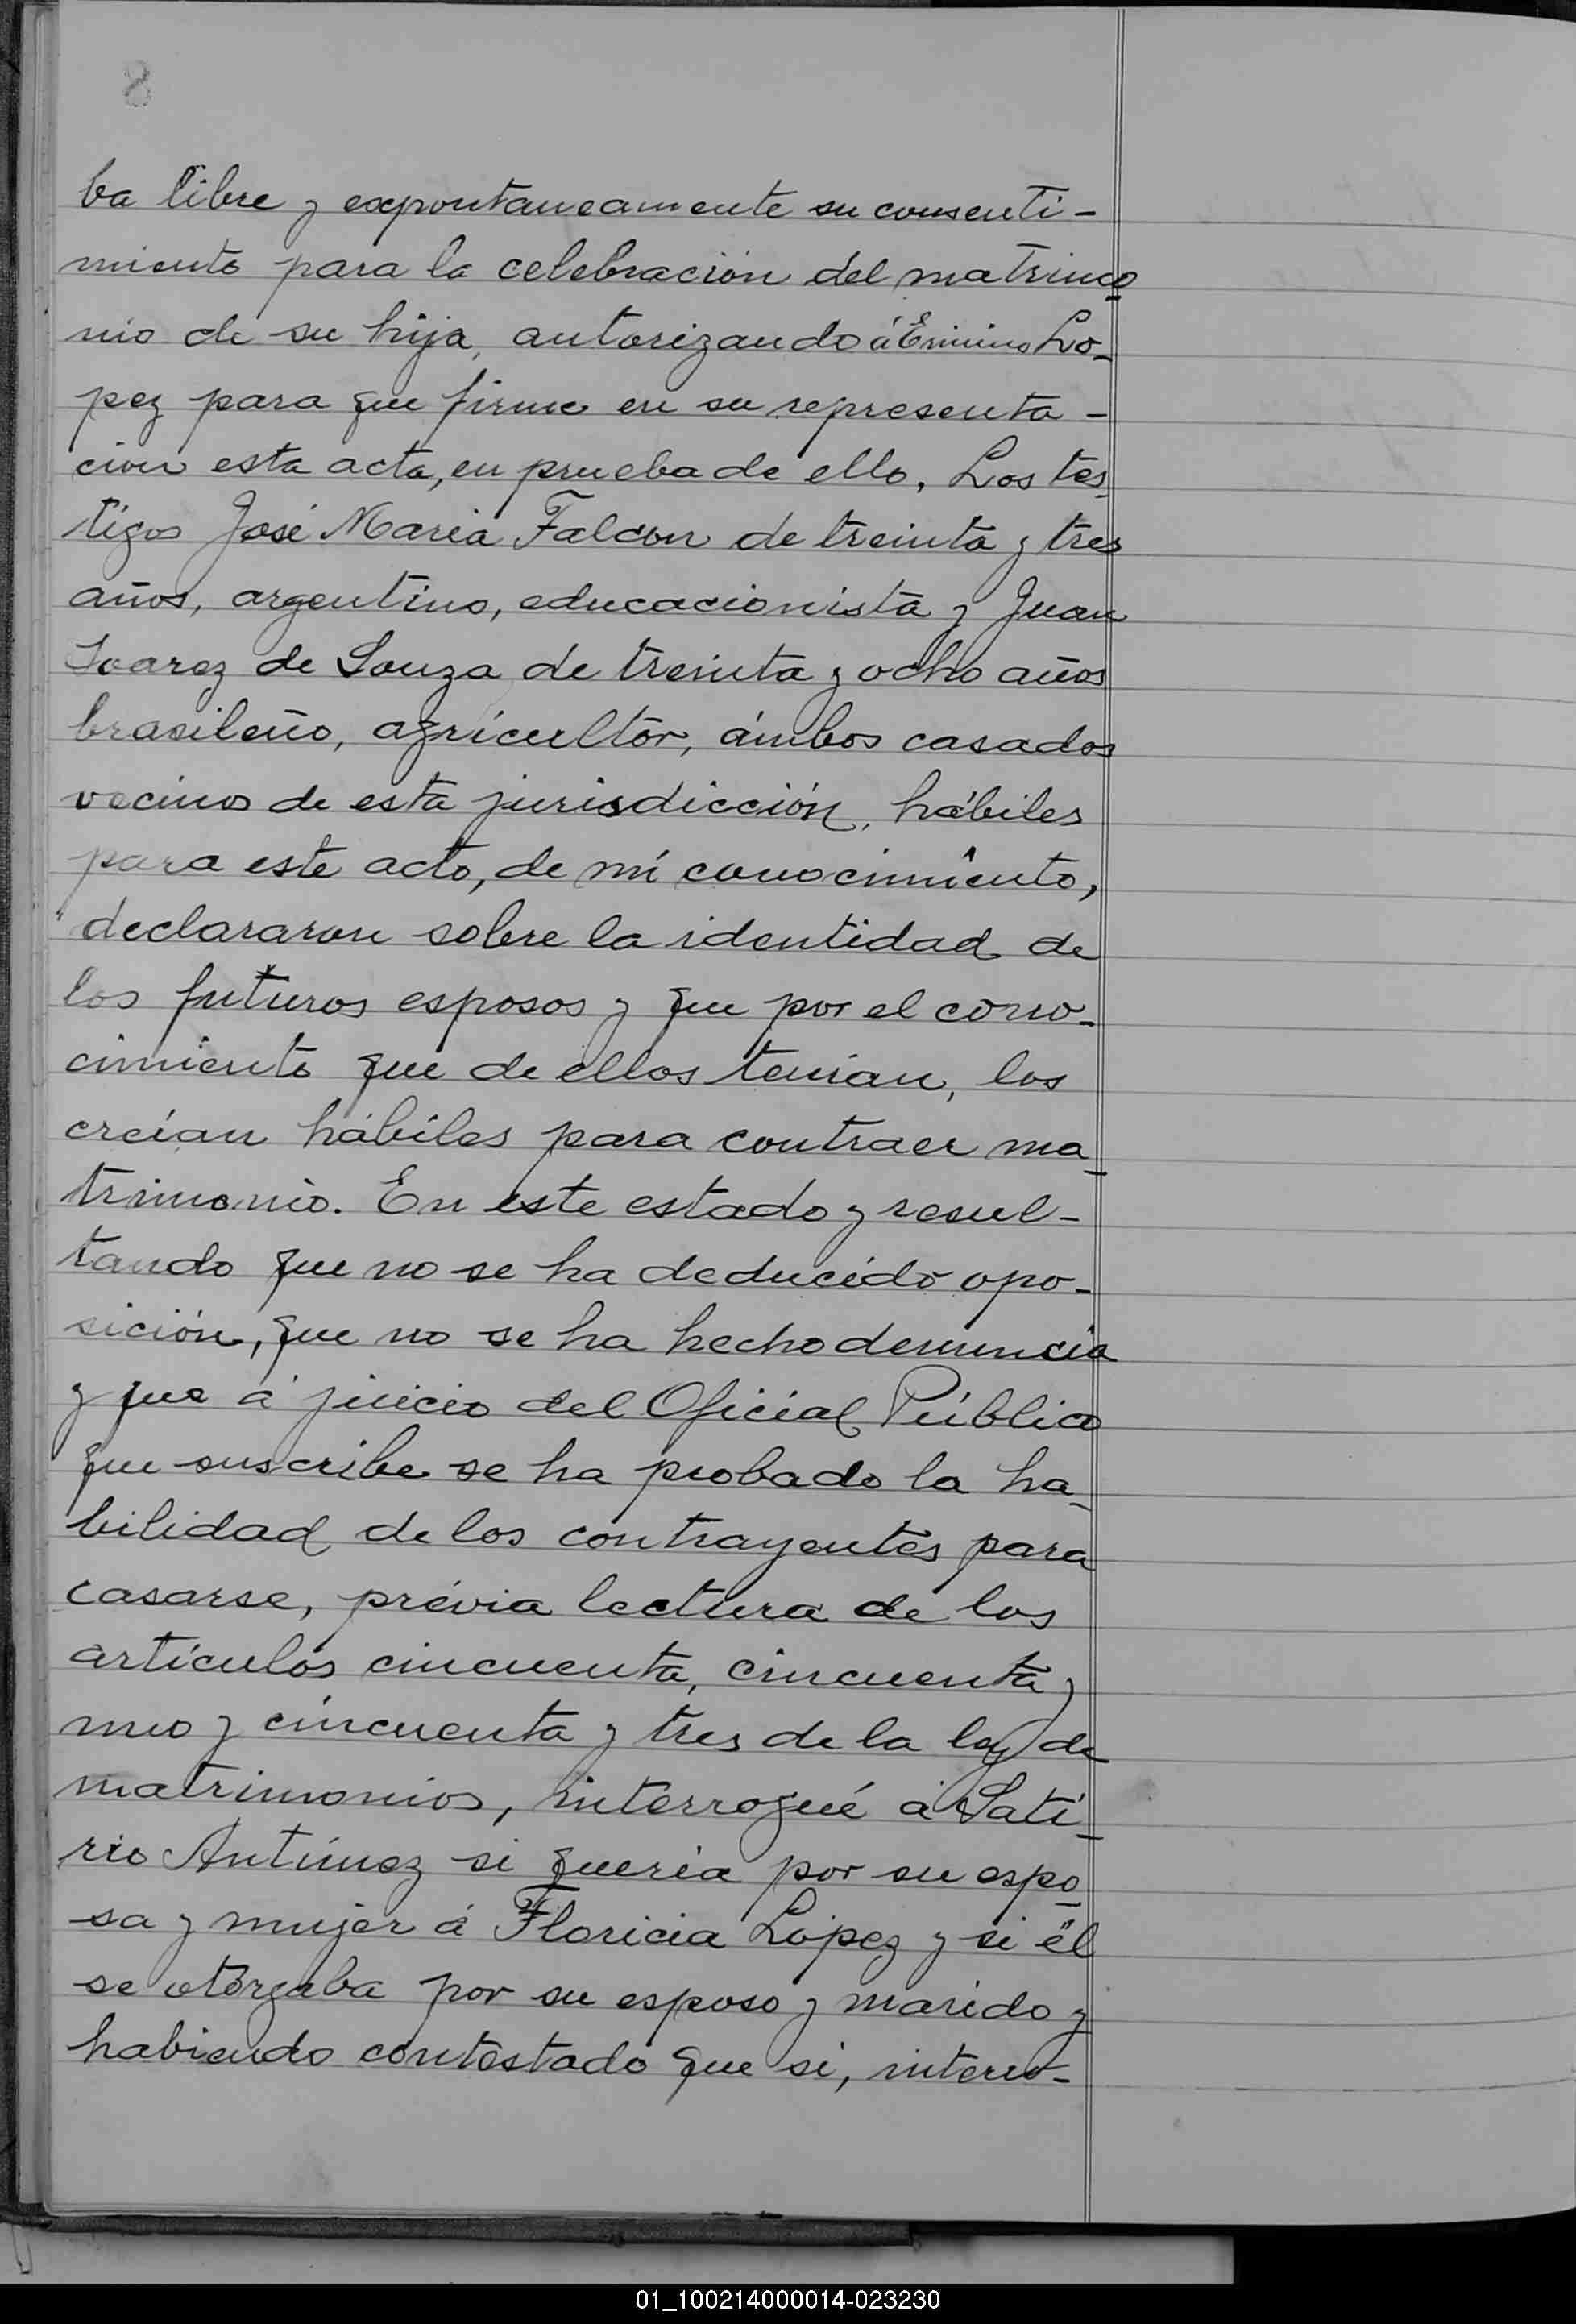 8
ba libre y expontaneamente su consenti-
miento para la celebración del matrimo
nio de su hija, autorizando á Erminio Lo-
pez para que firme en su representa-
cion esta acta, en prueba de ello. Los tes-
tigos José Maria Falcon de treinta y tres
años, argentino, educacionista y Juan
Soarez de Souza de treinta y ocho años
brasileño, agricultor, ámbos casados
vecinos de esta jurisdicción, hábiles
para este acto, de mi conocimiento,
declararon sobre la identidad de
los futuros esposos y que por el cono-
cimiento que de ellos tenian, los
creían hábiles para contraer ma-
trimonio. En este estado y resul-
tando que no se ha deducido opo-
sición, que no se ha hecho denuncia
y que á juicio del Oficial Público
que suscribe se ha probado la ha-
bilidad de los contrayentes para
casarse, prévia lectura de los
artículos cincuenta, cincuenta y
uno y cincuenta y tres de la ley de
matrimonios, interrogué á Sati-
rio Antúnez si queria por su espo
sa y mujer á Floricia López y si él
se otorgaba por su esposo y marido y
habiendo contestado que si, interro-
01_100214000014-023230